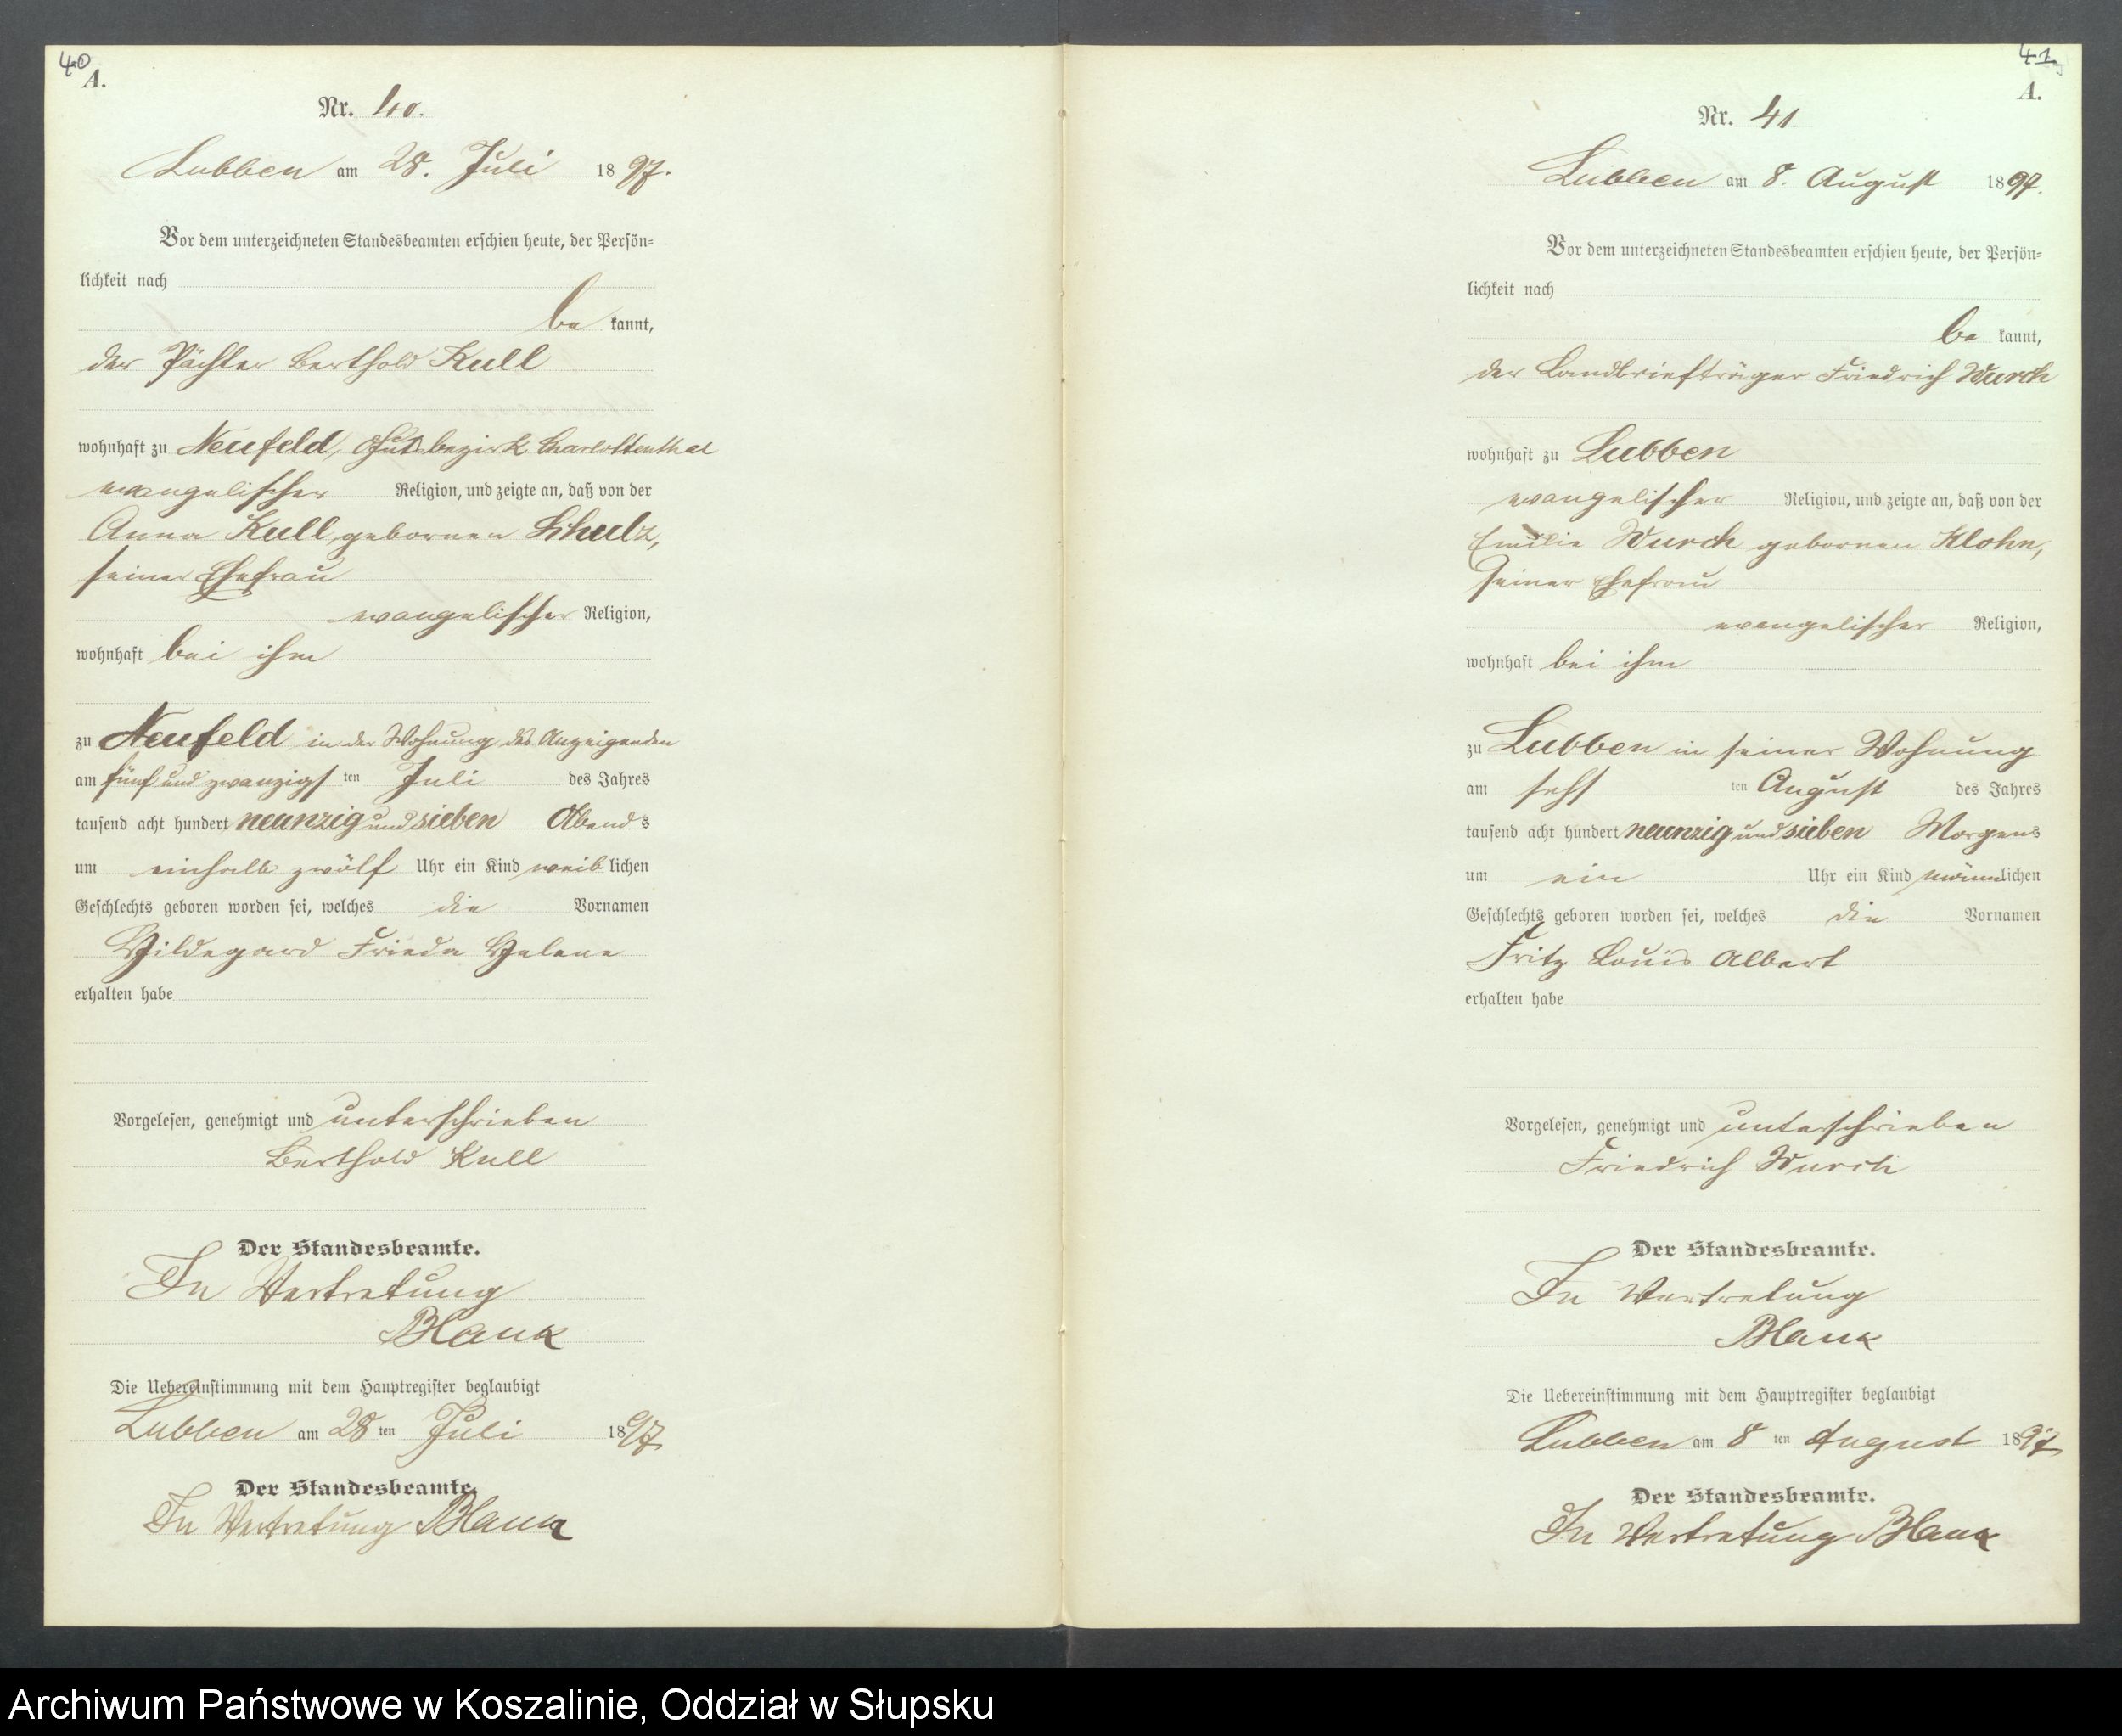 40
A.
Nr. 40.
Lubben am 28. Juli 1897.
Vor dem unterzeichneten Standesbeamten erschien heute, der Persön=
lichkeit nach
be kannt,
der Pächter Berthold Kull
wohnhaft zu Neufeld, Gutsbezirk Charlottenthal
evangelischer Religion, und zeigte an, daß von der
Anna Kull, gebornen Schulz,
seiner Ehefrau
evangelischer Religion,
wohnhaft bei ihm
zu Neufeld in der Wohnung des Anzeigenden
am fünf und zwanzigs ten Juli des Jahres
tausend acht hundert neunzig und sieben Abends
um einhalb zwölf Uhr ein Kind weib lichen
Geschlechts geboren worden sei, welches die Vornamen
Hildegard Frieda Helene
erhalten habe
Vorgelesen, genehmigt und unterschrieben
Berthold Kull
Der Standesbeamte.
In Vertretung
Blank
Die Uebereinstimmung mit dem Hauptregister beglaubigt
Lubben am 28 ten Juli 1897
Der Standesbeamte.
In Vertretung Blank
41
A.
Nr. 41.
Lubben am 8. August 1897.
Vor dem unterzeichneten Standesbeamten erschien heute, der Persön=
lichkeit nach
be kannt,
der Landbriefträger Friedrich Wurch
wohnhaft zu Lubben
evangelischer Religion, und zeigte an, daß von der
Emilie Wurch gebornen Klohn,
seiner Ehefrau
evangelischer Religion,
wohnhaft bei ihm
zu Lubben in seiner Wohnung
am sechs ten August des Jahres
tausend acht hundert neunzig und sieben Morgens
um ein Uhr ein Kind männlichen
Geschlechts geboren worden sei, welches die Vornamen
Fritz Louis Albert
erhalten habe
Vorgelesen, genehmigt und unterschrieben
Friedrich Wurch
Der Standesbeamte.
In Vertretung
Blank
Die Uebereinstimmung mit dem Hauptregister beglaubigt
Lubben am 8 ten August 1897
Der Standesbeamte.
In Vertretung Blank
Archiwum Państwowe w Koszalinie, Oddział w Słupsku